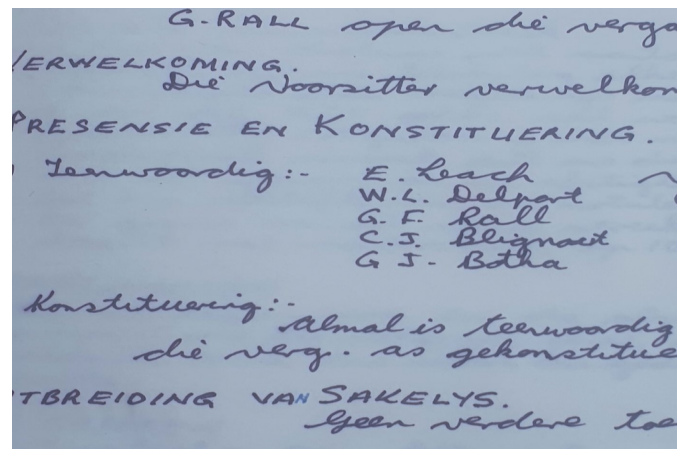 G. RALL open die verga
VERWELKOMING.
Die Voorsitter verwelkom
PRESENSIE EN KONSTITUERING.
Teenwoordig:- E. Leach
W. L. Delport
G. F. Rall
C. J. Blignaut
G J. Botha
Konstituering:-
Almal is teenwoordig
die verg. as gekonstitue
TBREIDING VAN SAKELYS.
Geen verdere toe